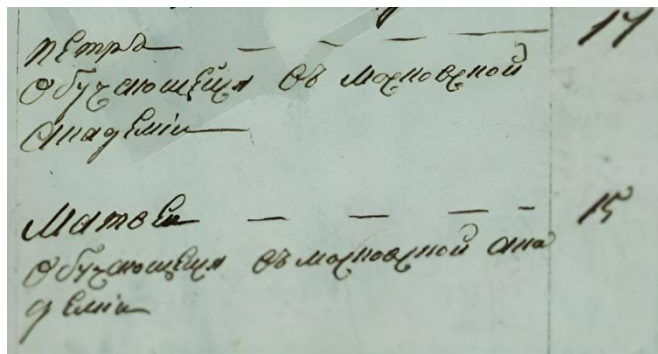 петръ — — — — 17
обучающейся въ московской
академіи
Матвеи — — — - 15
обучающейся въ московской ака
деміи